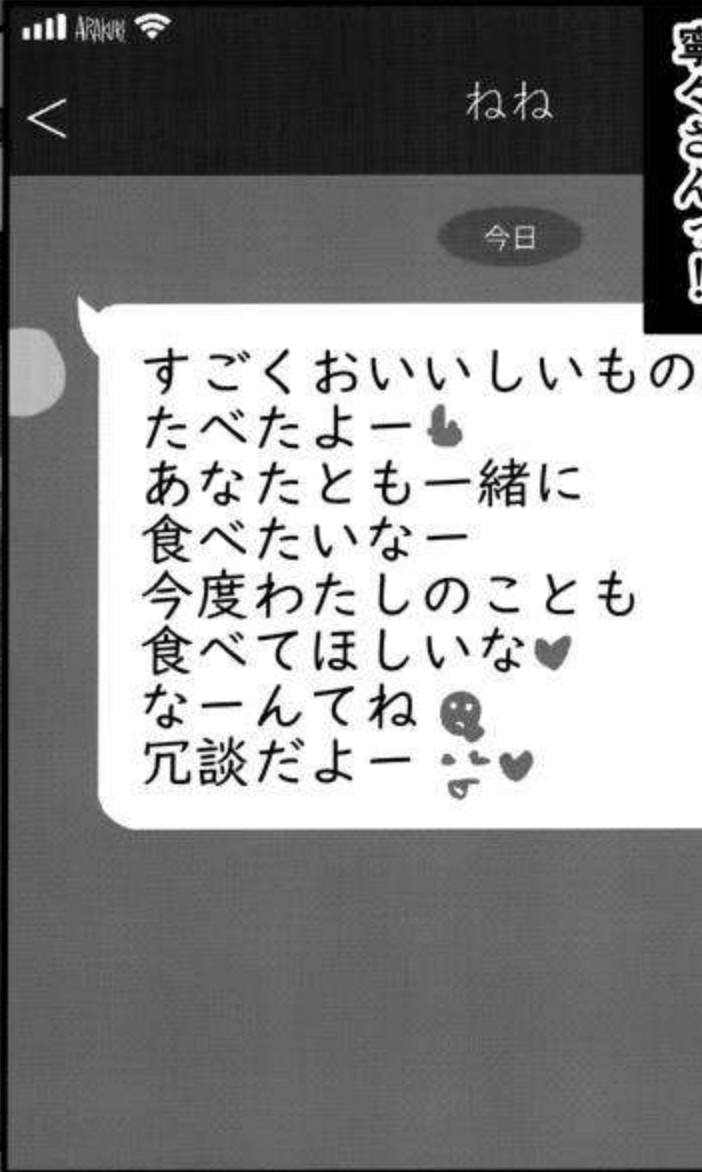 ARAKURE
ねね
寧々さんっ!
今日
すごくおいいしいもの
たべたよー
あなたとも一緒に
食べたいなー
今度わたしのことも
食べてほしいな
なーんてね
冗談だよー